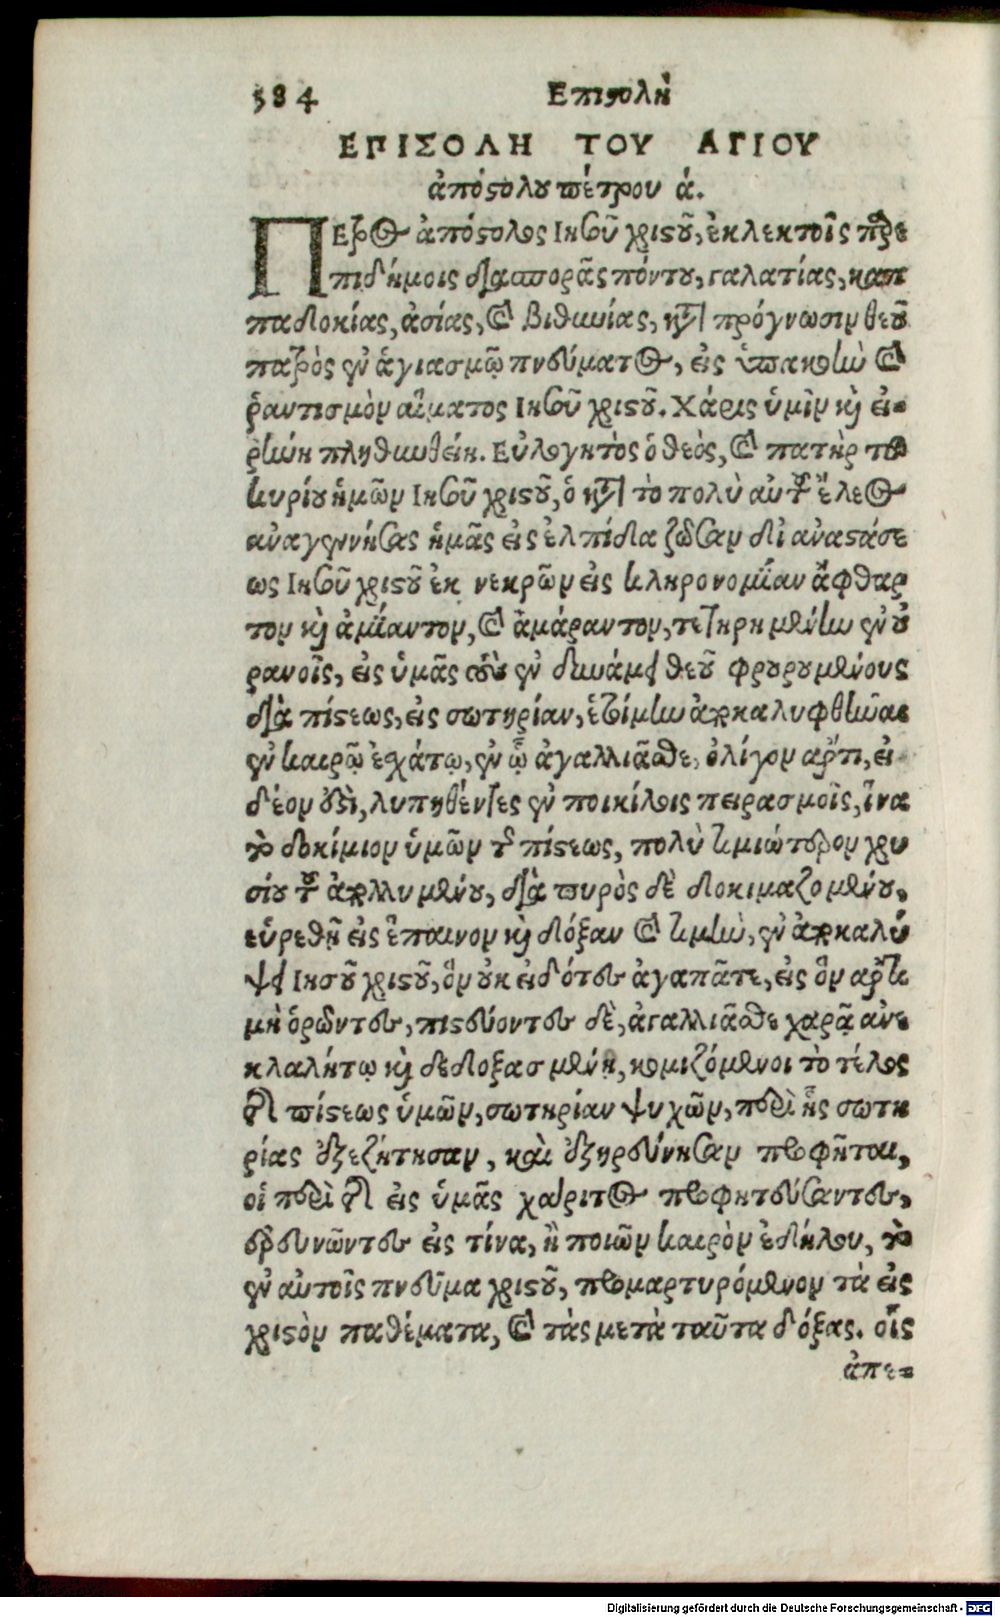 584 Επιϛολὴ
ΕΠΙΣΟΛΗ ΤΟΥ ΑΓΙΟΥ
ἀπόϛολου πέτρου ά.
ΠΕτρος ἀπόϛολος Ιησοῦ χριϛοῦ, ἐκλεκτοῖς παρε
πιδήμοις διασπορᾶς πόντου, γαλατίας, καπ
παδοκίας, ἀσίας, καὶ βιθωίας, κατὰ πρόγνωσιν θεοῦ
πατρὸς ἐν ἁγιασμῷ πνεύματος, εἰς ὑπακοὴν καὶ
ῥαντισμὸν αἵματος Ιησοῦ χριϛοῦ. Χάρις ὑμῖν καὶ εἰ-
ρήνη πληθυνθείη. Εὐλογητὸς ὁ θεὸς, καὶ πατὴρ του
κυρίου ἡμῶν Ιησοῦ χριϛοῦ, ὁ κατὰ τὸ πολὺ αὐτοῦ ἔλεος
ἀναγεννήσας ἡμᾶς εἰς ἐλπίδα ζῶσαν δι ἀναϛάσε
ως Ιησοῦ χριϛοῦ ἐκ νεκρῶν εἰς κληρονομίαν ἄφθαρ
τον καὶ ἀμίαντον, καὶ ἀμάραντον, τετηρημένην ἐν οὐ
ρανοῖς, εἰς ὑμᾶς τοὺς ἐν δυνάμει θεοῦ φρουρουμένους
διὰ πίϛεως, εἰς σωτηρίαν, ἑτοίμην ἀποκαλυφθῆναι
ἐν καιρῷ ἐσχάτῳ, ἐν ᾧ ἀγαλλιᾶσθε, ὀλίγον ἄρτι, εἰ
δέον ἐϛὶ, λυπηθέντες ἐν ποικίλοις πειρασμοῖς, ἵνα
τὸ δοκίμιον ὑμῶν τῆς πίϛεως, πολὺ τιμιώτερον χρυ
σίου τοῦ ἀπολλυμένου, διὰ πυρὸς δὲ δοκιμαζομένου,
εὑρεθῇ εἰς ἔπαινον καὶ δόξαν καὶ τιμὴν, ἐν ἀποκαλύ
ψει Ιησοῦ χριϛοῦ, ὃν οὐκ εἰδότες ἀγαπᾶτε, εἰς ὃν ἄρτι
μὴ ὁρῶντες, πιϛεύοντες δὲ, ἀγαλλιᾶσθε χαρᾷ ἀνε
κλαλήτῳ καὶ δεδοξασμένῃ, κομιζόμενοι τὸ τέλος
τῆς πίϛεως ὑμῶν, σωτηρίαν ψυχῶν, περὶ ἧς σωτη
ρίας ἐξεζήτησαν, καὶ ἐξηρεύνησαν προφῆται,
οἱ περὶ τῆς εἰς ὑμᾶς χάριτος προφητεύσαντες,
ἐρευνῶντες εἰς τίνα, ἢ ποιῶν καιρὸν ἐδήλου, τὸ
ἐν αὐτοῖς πνεῦμα χριϛοῦ, προμαρτυρόμενον τὰ εἰς
χριϛὸν παθέματα, καὶ τὰς μετὰ ταῦτα δόξας. οἷς
ἀπε-
Digitalisierung gefördert durch die Deutsche Forschungsgemeinschaft - DFG